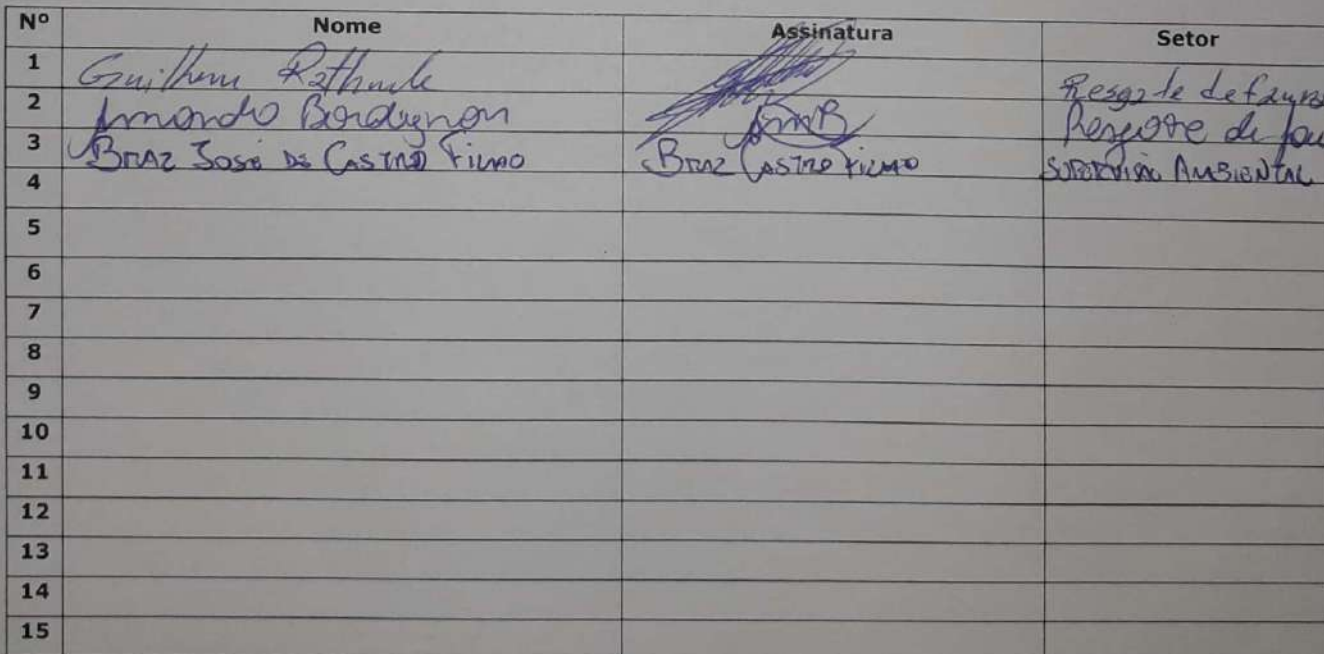 Nº Nome Assinatura Setor
1 Guilherme Rathunde Resgate de fauna
2 Amanda Bordignon AmB Resgate de fau
3 Braz José de Castro Filho Braz Castro Filho Supervisão Ambiental
4
5
6
7
8
9
10
11
12
13
14
15